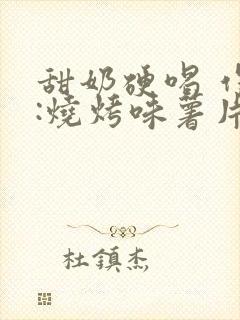 甜奶硬唱
:燒烤味薯片
杜鎮杰